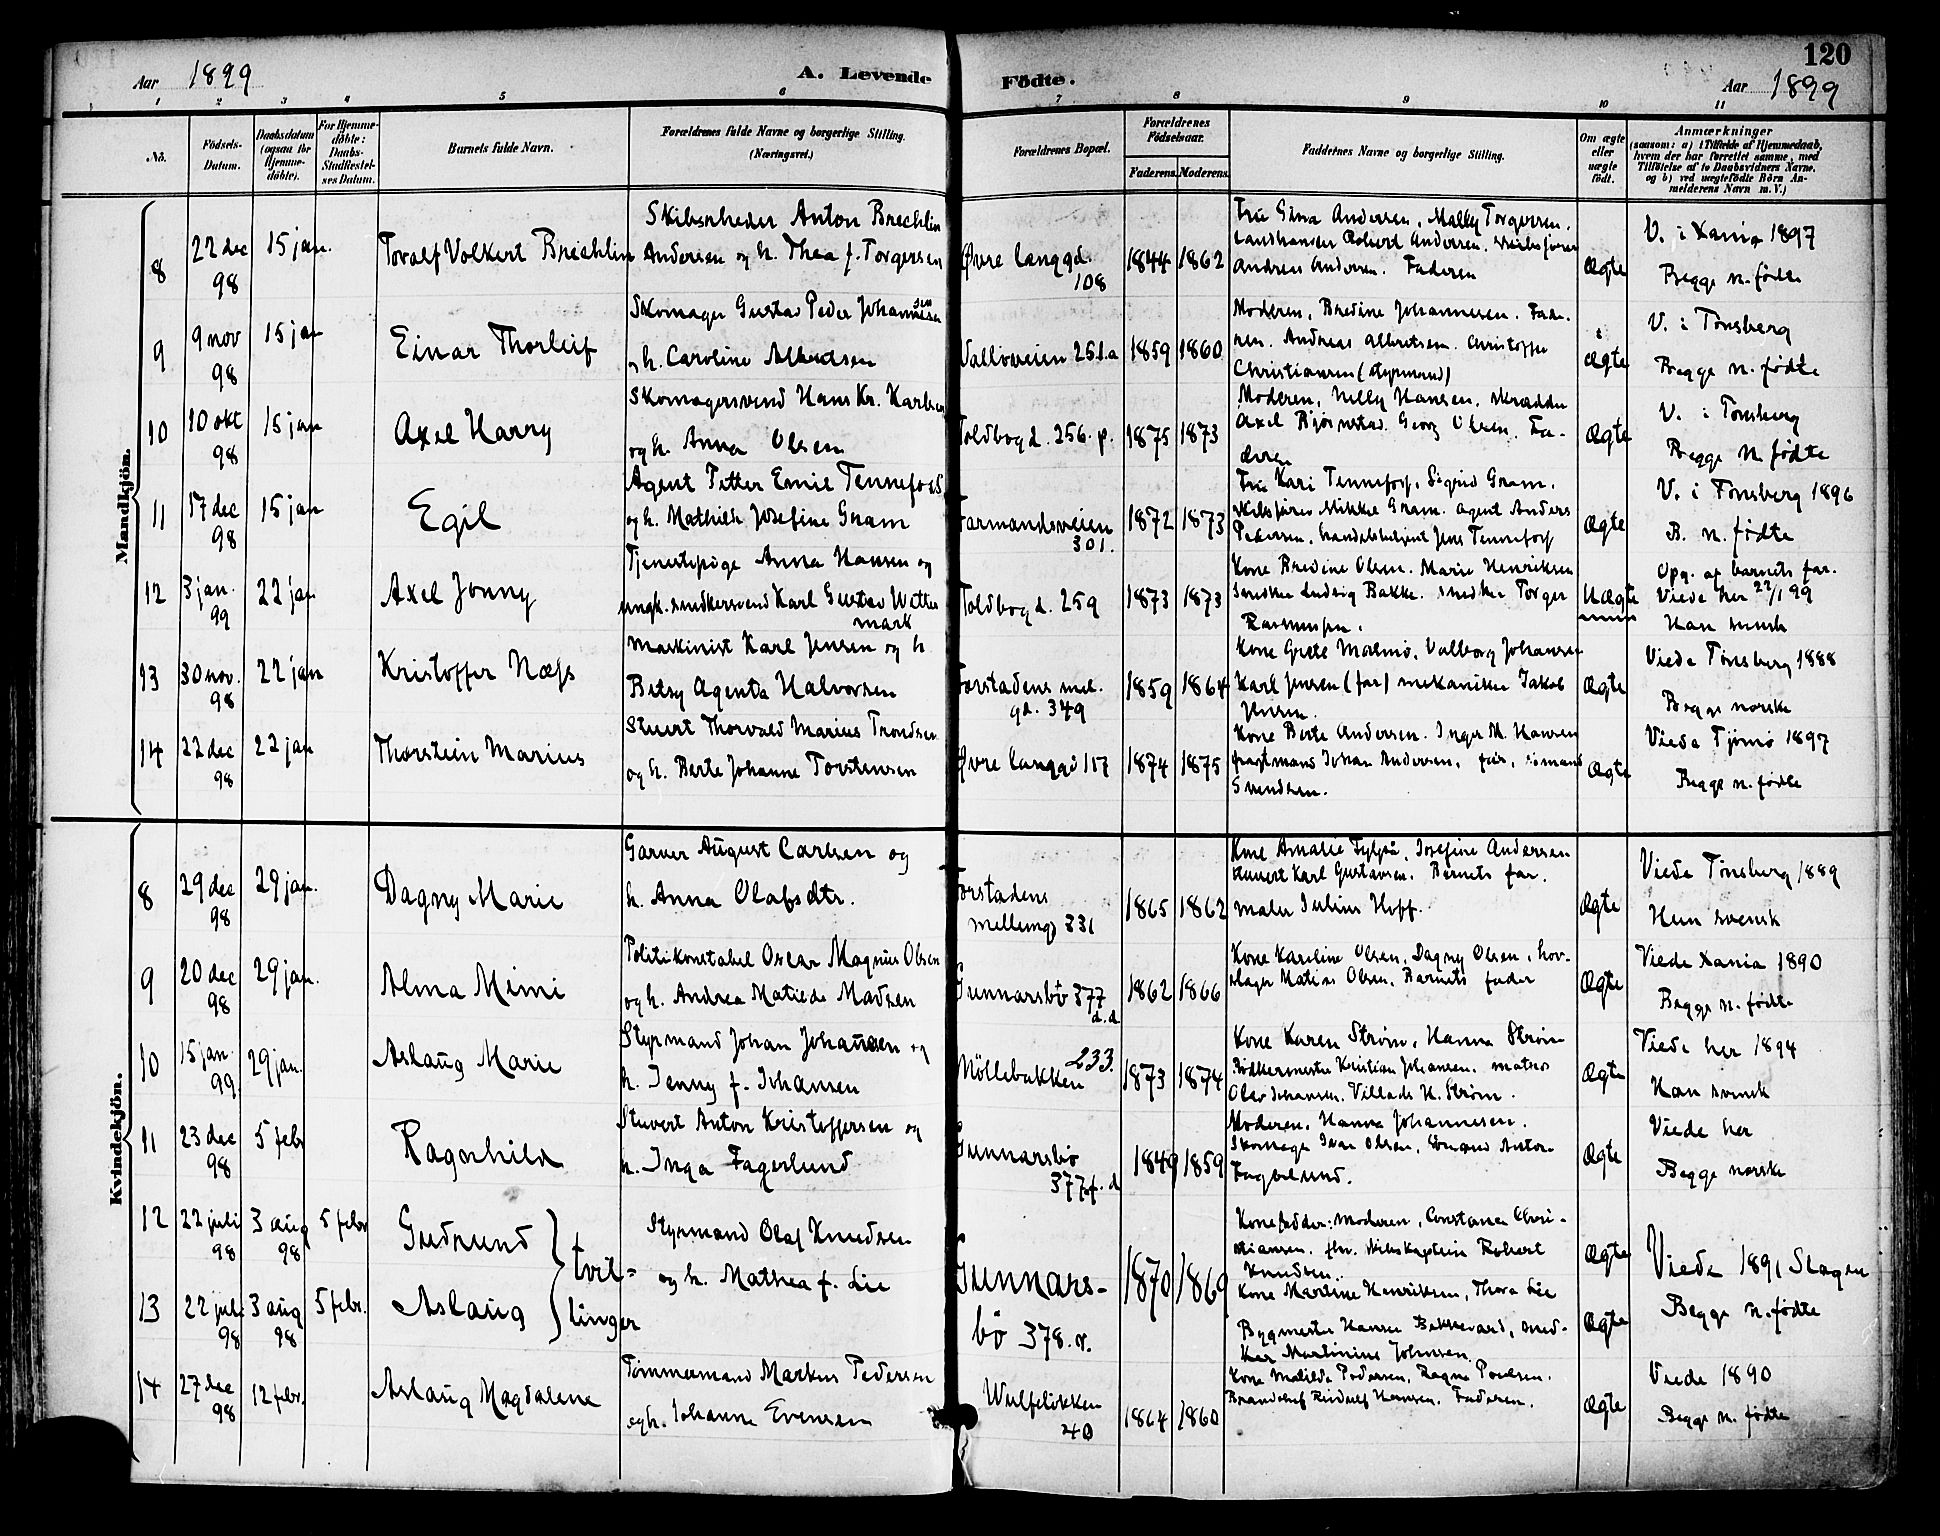 120
Aar 1899
A. Levende Fødte.
Aar 1899
1 2 3 4 5 6 7 8 9 10 11
No.
Födsels-Datum.
Daabsdatum (ogsaa for Hjemme-döbte).
For Hjemme-döbte: Daabs-Stadfæstel-ses Datum.
Barnets fulde Navn.
Forældrenes fulde Navne og borgerlige Stilling. (Næringsvei.)
Forældrenes Bopæl.
Forældrenes Födselsaar.
Faderens. Moderens.
Faddernes Navne og borgerlige Stilling.
Om ægte eller uægte født.
Anmærkninger
(saasom: a) i Tilfælde af Hjemmedaab, hvem der har forrettet samme, med Tilföielse af to Daabsvidners Navne, og b) ved uægtefödte Börn An-melderens Navn m. V.)
Mandkjön.
8 22 dec 98 15 jan. Toralf Volkert Brechlin
Skibsrheder Anton Brechlin
Andersen og h. Thea f. Torgersen
Øvre langgd. 108
1844 1862
Andersen, Mally Torgersen.
Andreas Andersen. Faderen
Ægte
V. i Xania 1897
Begge n. fødte
9 9 nov 98 15 jan Einar Thorleif
Skomager Gustav Peder Johannesen
og h. Caroline
Vallöveien 251.a
1859 1860
Moderen, Bredine Johannesen. Fade-
ren. Andreas Albretsen. Christoffer
Christiansen (styrmand)
ægte
V. i Tønsberg
Begge n. fødte
10 10 okt 98 15 jan Axel Harry
Skomagersvend Hans Kr. Karlsen
og h. Anna Olsen
Toldbogd. 256. p.
1875 1873
Moderen, Nelly Hansen, skrædder
Axel Bjørnstad. Georg Olsen. Fa-
deren
Ægte
V. i Tønsberg
Begge n. fødte
11 17 dec 98 15 jan Egil
Agent Petter Emil Tennefoss
og h. Mathilde Josefine Gram
Farmandsveien 301.
1872 1873
Fru Kari Tenneforf, Sigrid Gram.
skibsfører Mikkel Gram. agent Anders
Pedersen, handelsbetjent Jens Tenneforf
Ægte
V. i Tønsberg 1896
B. n. fødte
12 3 jan. 99 22 jan Axel Jonny
Tjenestepige Anna Hansen og
ungk. snedkersvend Karl Gustav Wetter
mark
Toldbogd. 259
1873 1873
Kone Bredine Olsen. Marie Henriksen
Snedker Ludvig Bakke. snedker Torger
Rasmussen.
Uægte
Opg. af barnets far.
Viede her 22/1 99
Han svensk
13 30 nov. 98 22 jan Kristoffer Næss
Maskinist Karl Jensen og h
Betsy Agenta Halvorsen
Forstadens mel. gd. 349
1859 1864
Kone Grete Malmø, Valborg Johansen
Karl Jensen (far) mekaniker Jakob
Jensen.
Ægte
Viede Tønsberg 1888
Begge norske
14 22 dec 98 22 jan Thorstein Marius
Stuert Thorvald Marius Trondsen
og h. Berte Johanne Torstensen
Øvre langgd 117
1874 1875
Kone Berte Andersen. Inger M. Hansen
fragtmand Johan Andersen, far, sömand
Svendsen.
Ægte
Viede Tjømø 1897
Begge n. fødte
Kvindekjön.
8 29 dec 98 29 jan. Dagny Marie
Garver August Carlsen og
h. Anna Olafsdtr.
Forstadens mellemg 331
1865 1862
stuert Karl Gustavsen. Barnets far.
maler Julius Hoff.
Ægte
Viede Tønsberg 1889
Hun svensk
9 20 dec 98 29 jan. Alma Mimi
Politikonstabel Oscar Magnus Olsen
og h. Andrea Matilde Madsen
Gunnarsbö 377 d.d
1862 1866
Kone Karoline Olsen, Dagny Olsen, hov-
slager Matias Olsen, Barnets fader
Ægte
Viede Xania 1890
Begge n. fødte
10 15 jan. 99. 29 jan. Aslaug Marie
Styrmand Johan Johansen og
h. Jenny f. Johansen
Möllebakken 233.
1873 1874
Kone Karen Strøm, Hanna Strøm
Bödkermester Kristian Johansen. matros
Olav Johansen, Villads H. Strøm.
Ægte
Viede her 1894
Han svensk
11 23 dec 98 5 febr Ragnhild
Stuvert Anton Kristoffersen og
h. Inga Fagerlund
Gunnarsbö 377.f. d
1849 1859
Moderen, Hanna Johannesen.
Skomager Ivar Olsen, Sömand Anton
Fagerlund.
Ægte
Viede her
Begge norske
12 22 juli 98 3 aug 98 5 febr Gudrund
13 22 juli 98 3 aug 98 5 febr. Aslaug
} tvil=
linger
Styrmand Olaf Knudsen
og h. Mathea f. Lie
Gunnars-
bö 378.
1870 1869
Konefadder: Moderen, Constance Chri-
stiansen. skibskaptein Robert
Knudsen.
Kone Martine Henriksen, Thora Lie
Bygmester Hansen Bekkevard, sned-
ker Martinius Johnsen
Ægte
Ægte
Viede 1891 Slagen
Begge n. fødte
14 27 dec 98 12 febr. Aslaug Magdalene
Tømmermand Markus Pedersen
og h. Johanne Evensen
Wulfeløkken 40
1864 1860
Kone Matilde Pedersen, Ragna Poulsen.
Hansen. Faderen.
Ægte
Viede 1890
Begge n. fødte